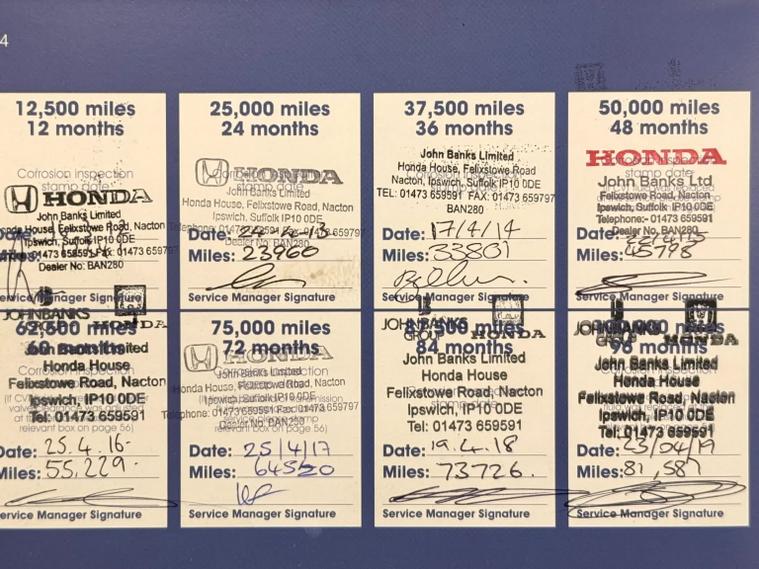 4
12,500 miles
12 months
Corrosion inspection
stamp date
HONDA
John Banks Limited
Honda House, Felixstowe Road, Nacton
Ipswich, Suffolk IP10 0DE
Dealer No: BAN280
Service Manager Signature
25,000 miles
24 months
HONDA
John Banks Limited
Honda House, Felixstowe Road, Nacton
Ipswich, Suffolk IP10 0DE
Dealer No: BAN280
Date:
Miles: 23960
Service Manager Signature
37,500 miles
36 months
John Banks Limited
Honda House, Felixstowe Road
Nacton, Ipswich, Suffolk IP10 0DE
TEL: 01473 659591 FAX: 01473 659797
BAN280
Date: 17/4/14
Miles: 33801
Service Manager Signature
50,000 miles
48 months
HONDA
John Banks Ltd
Felixstowe Road, Nacton
Ipswich, Suffolk IP10 0DE
Telephone:- 01473 659591
Dealer No. BAN280
Date:
Miles: 45798
Service Manager Signature
62,500 miles
60 months
JOHN BANKS HONDA
John Banks Limited
Honda House
Felixstowe Road, Nacton
Ipswich, IP10 0DE
Tel: 01473 659591
relevant box on page 56)
Date: 25.4.16-
Miles: 55,229.
Service Manager Signature
75,000 miles
72 months
HONDA
John Banks Limited
Honda House, Felixstowe Road, Nacton
Ipswich, Suffolk IP10 0DE
Telephone: 01473 659591 Fax: 01473 659797
Dealer No. BAN280
relevant box on page 56)
Date: 25/4/17
Miles: 64520
Service Manager Signature
84 months
JOHN BANKS GROUP HONDA
John Banks Limited
Honda House
Felixstowe Road, Nacton
Ipswich, IP10 0DE
Tel: 01473 659591
Date: 19.4.18
Miles: 73726.
Service Manager Signature
96 months
JOHN BANKS GROUP HONDA
John Banks Limited
Honda House
Felixstowe Road, Nacton
Ipswich, IP10 0DE
Tel: 01473 659591
Date: 23/04/19
Miles: 81,587
Service Manager Signature